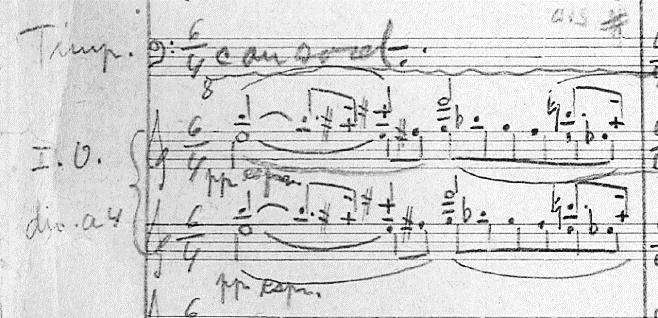 ais #
Timp. 6/4 con sord.
8
I. V. 6/4
pp espr.
div. a 4 6/4
pp espr.
6